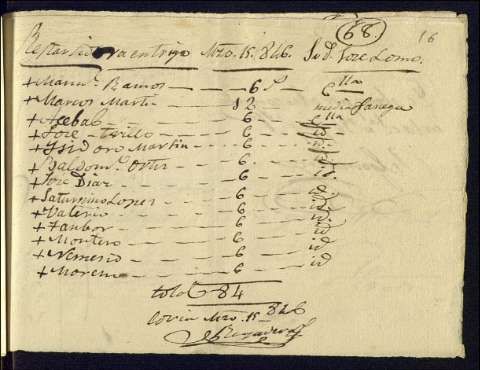 (68.) 16
Repartido va entrigo Mzo. 15. 846. Sr. Dn. Jose Lomo.
+ Manul. Ramos — 6 fs clla
+ Marcos Martin — 12. media fanega
+ Acebal — 6 clla
+ Jose Tirilo — 6 id
+ Isidoro Martin — 6 id
+ Baldomo. Ortiz — 6. id.
+ Jose Diaz — 6
+ Saturnino Lopez — 6 id.
+ Valerio — 6 id.
+ — 6 id
+ Montero — 6 id
+ Nemesio — 6 id
+ Moreno — 6 id
total 84
Mzo. 15 846